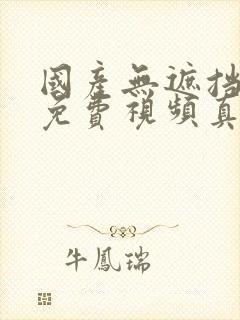 國產無遮挡
免費視頻真
牛鳳瑞